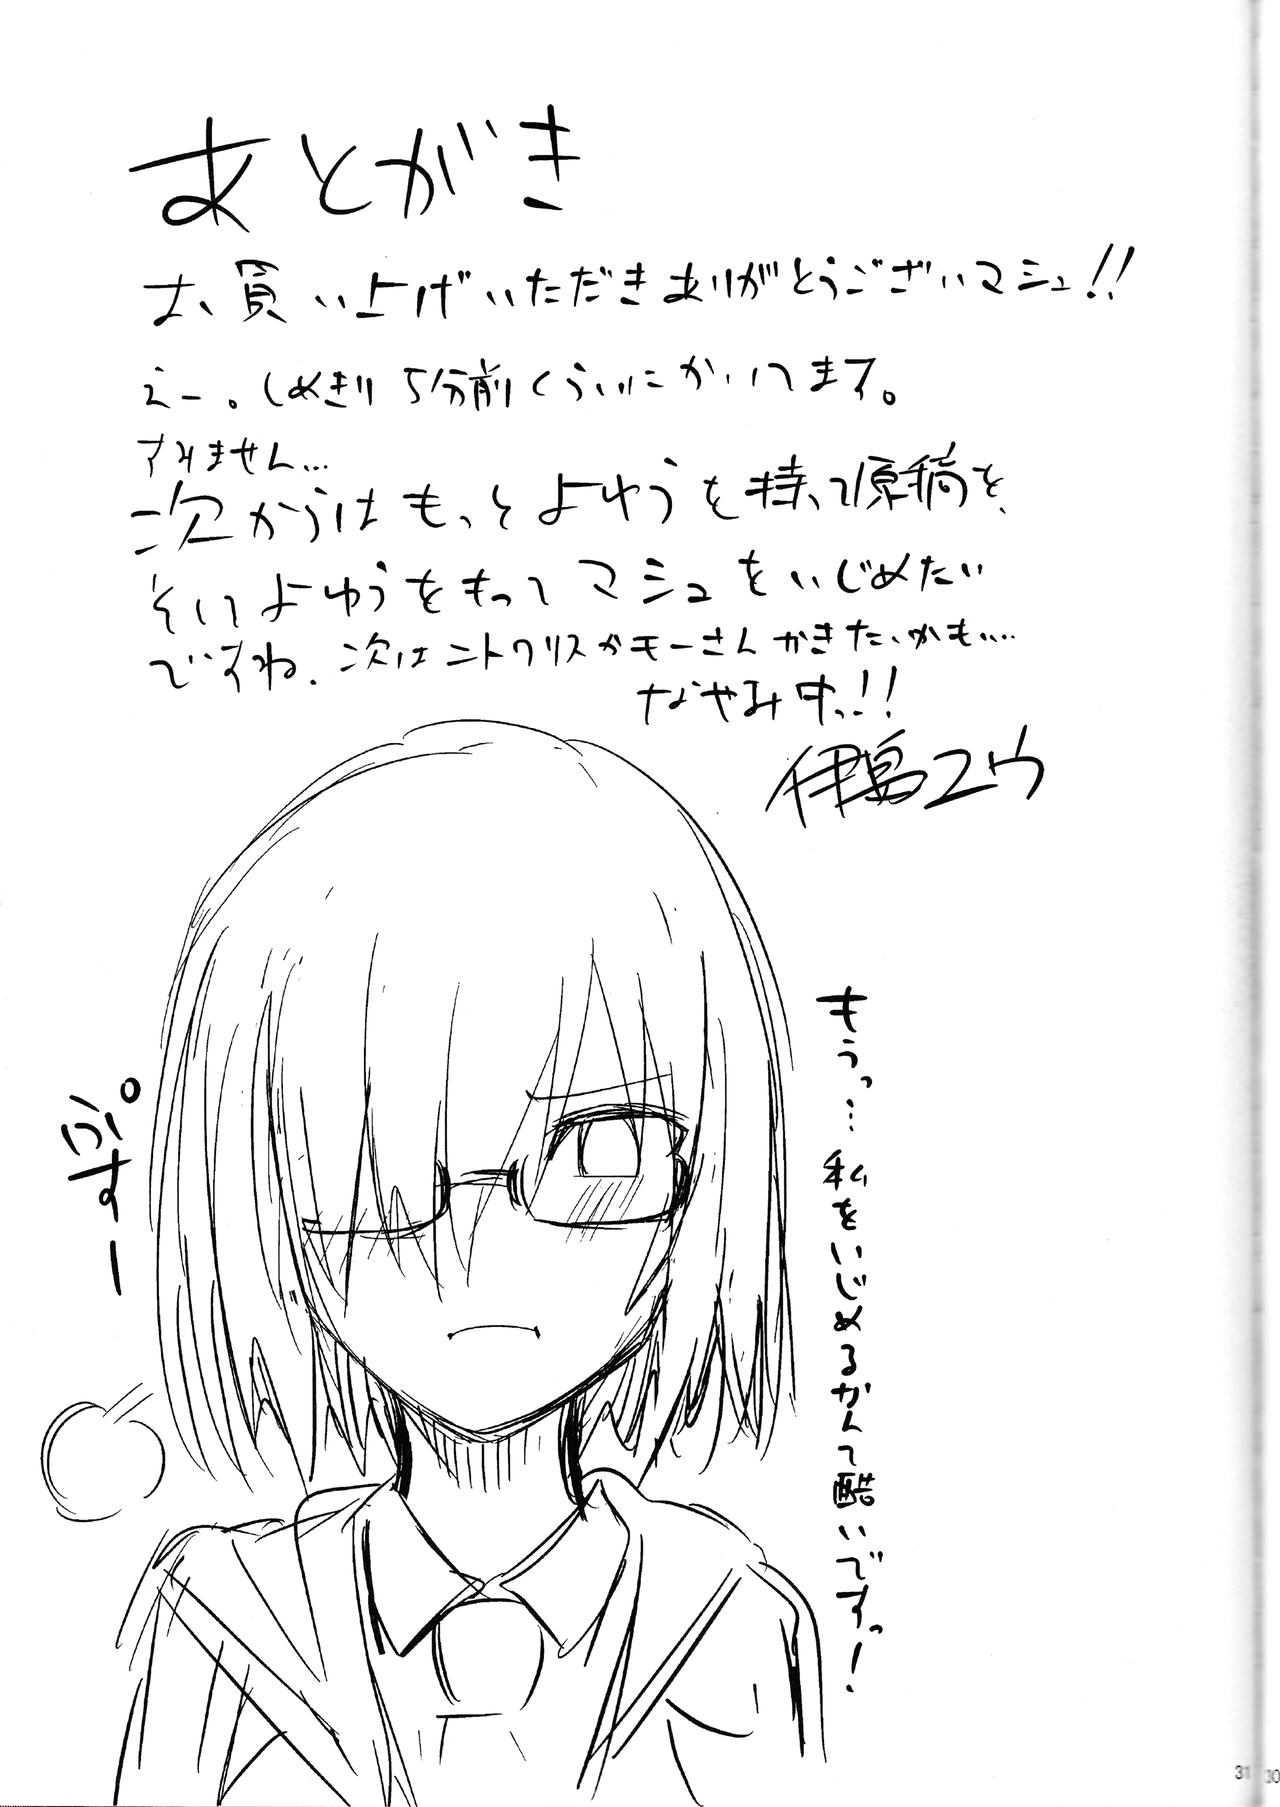 あとがき
お買い上げいただきありがとうございマシュ!!
えー。しめきり5分前くらいにかいてます。
すみません…
次からはもっとよゆうを持って原稿を、
そしてよゆうをもってマシュをいじめたい
ですね。次はニトクリスかモーさんかきたいかも….
なやみ中っ!!
伊島ユウ
もうっ…私をいじめるなんて酷いですっ!
ぷすー
31
30